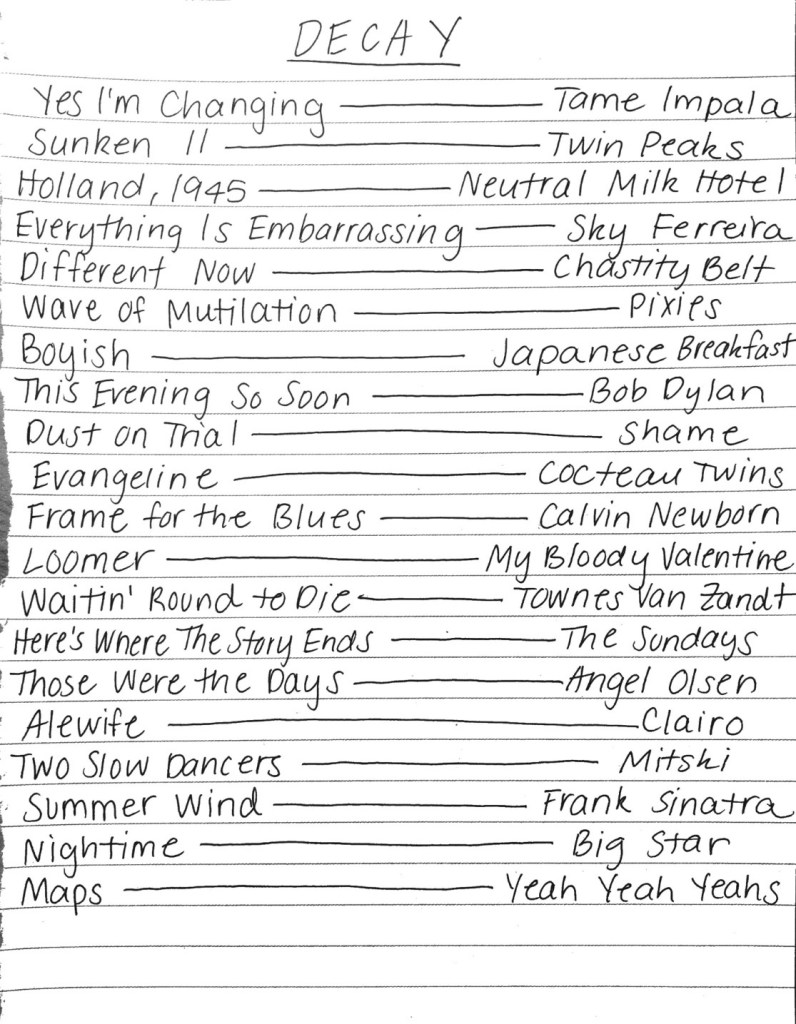 DECAY
Yes I'm Changing — Tame Impala
Sunken II — Twin Peaks
Holland, 1945 — Neutral Milk Hotel
Everything Is Embarrassing — Sky Ferreira
Different Now — Chastity Belt
Wave of Mutilation — Pixies
Boyish — Japanese Breakfast
This Evening So Soon — Bob Dylan
Dust on Trial — Shame
Evangeline — Cocteau Twins
Frame for the Blues — Calvin Newborn
Loomer — My Bloody Valentine
Waitin' Round to Die — Townes Van Zandt
Here's Where The Story Ends — The Sundays
Those Were the Days — Angel Olsen
Alewife — Clairo
Two Slow Dancers — Mitski
Summer Wind — Frank Sinatra
Nightime — Big Star
Maps — Yeah Yeah Yeahs